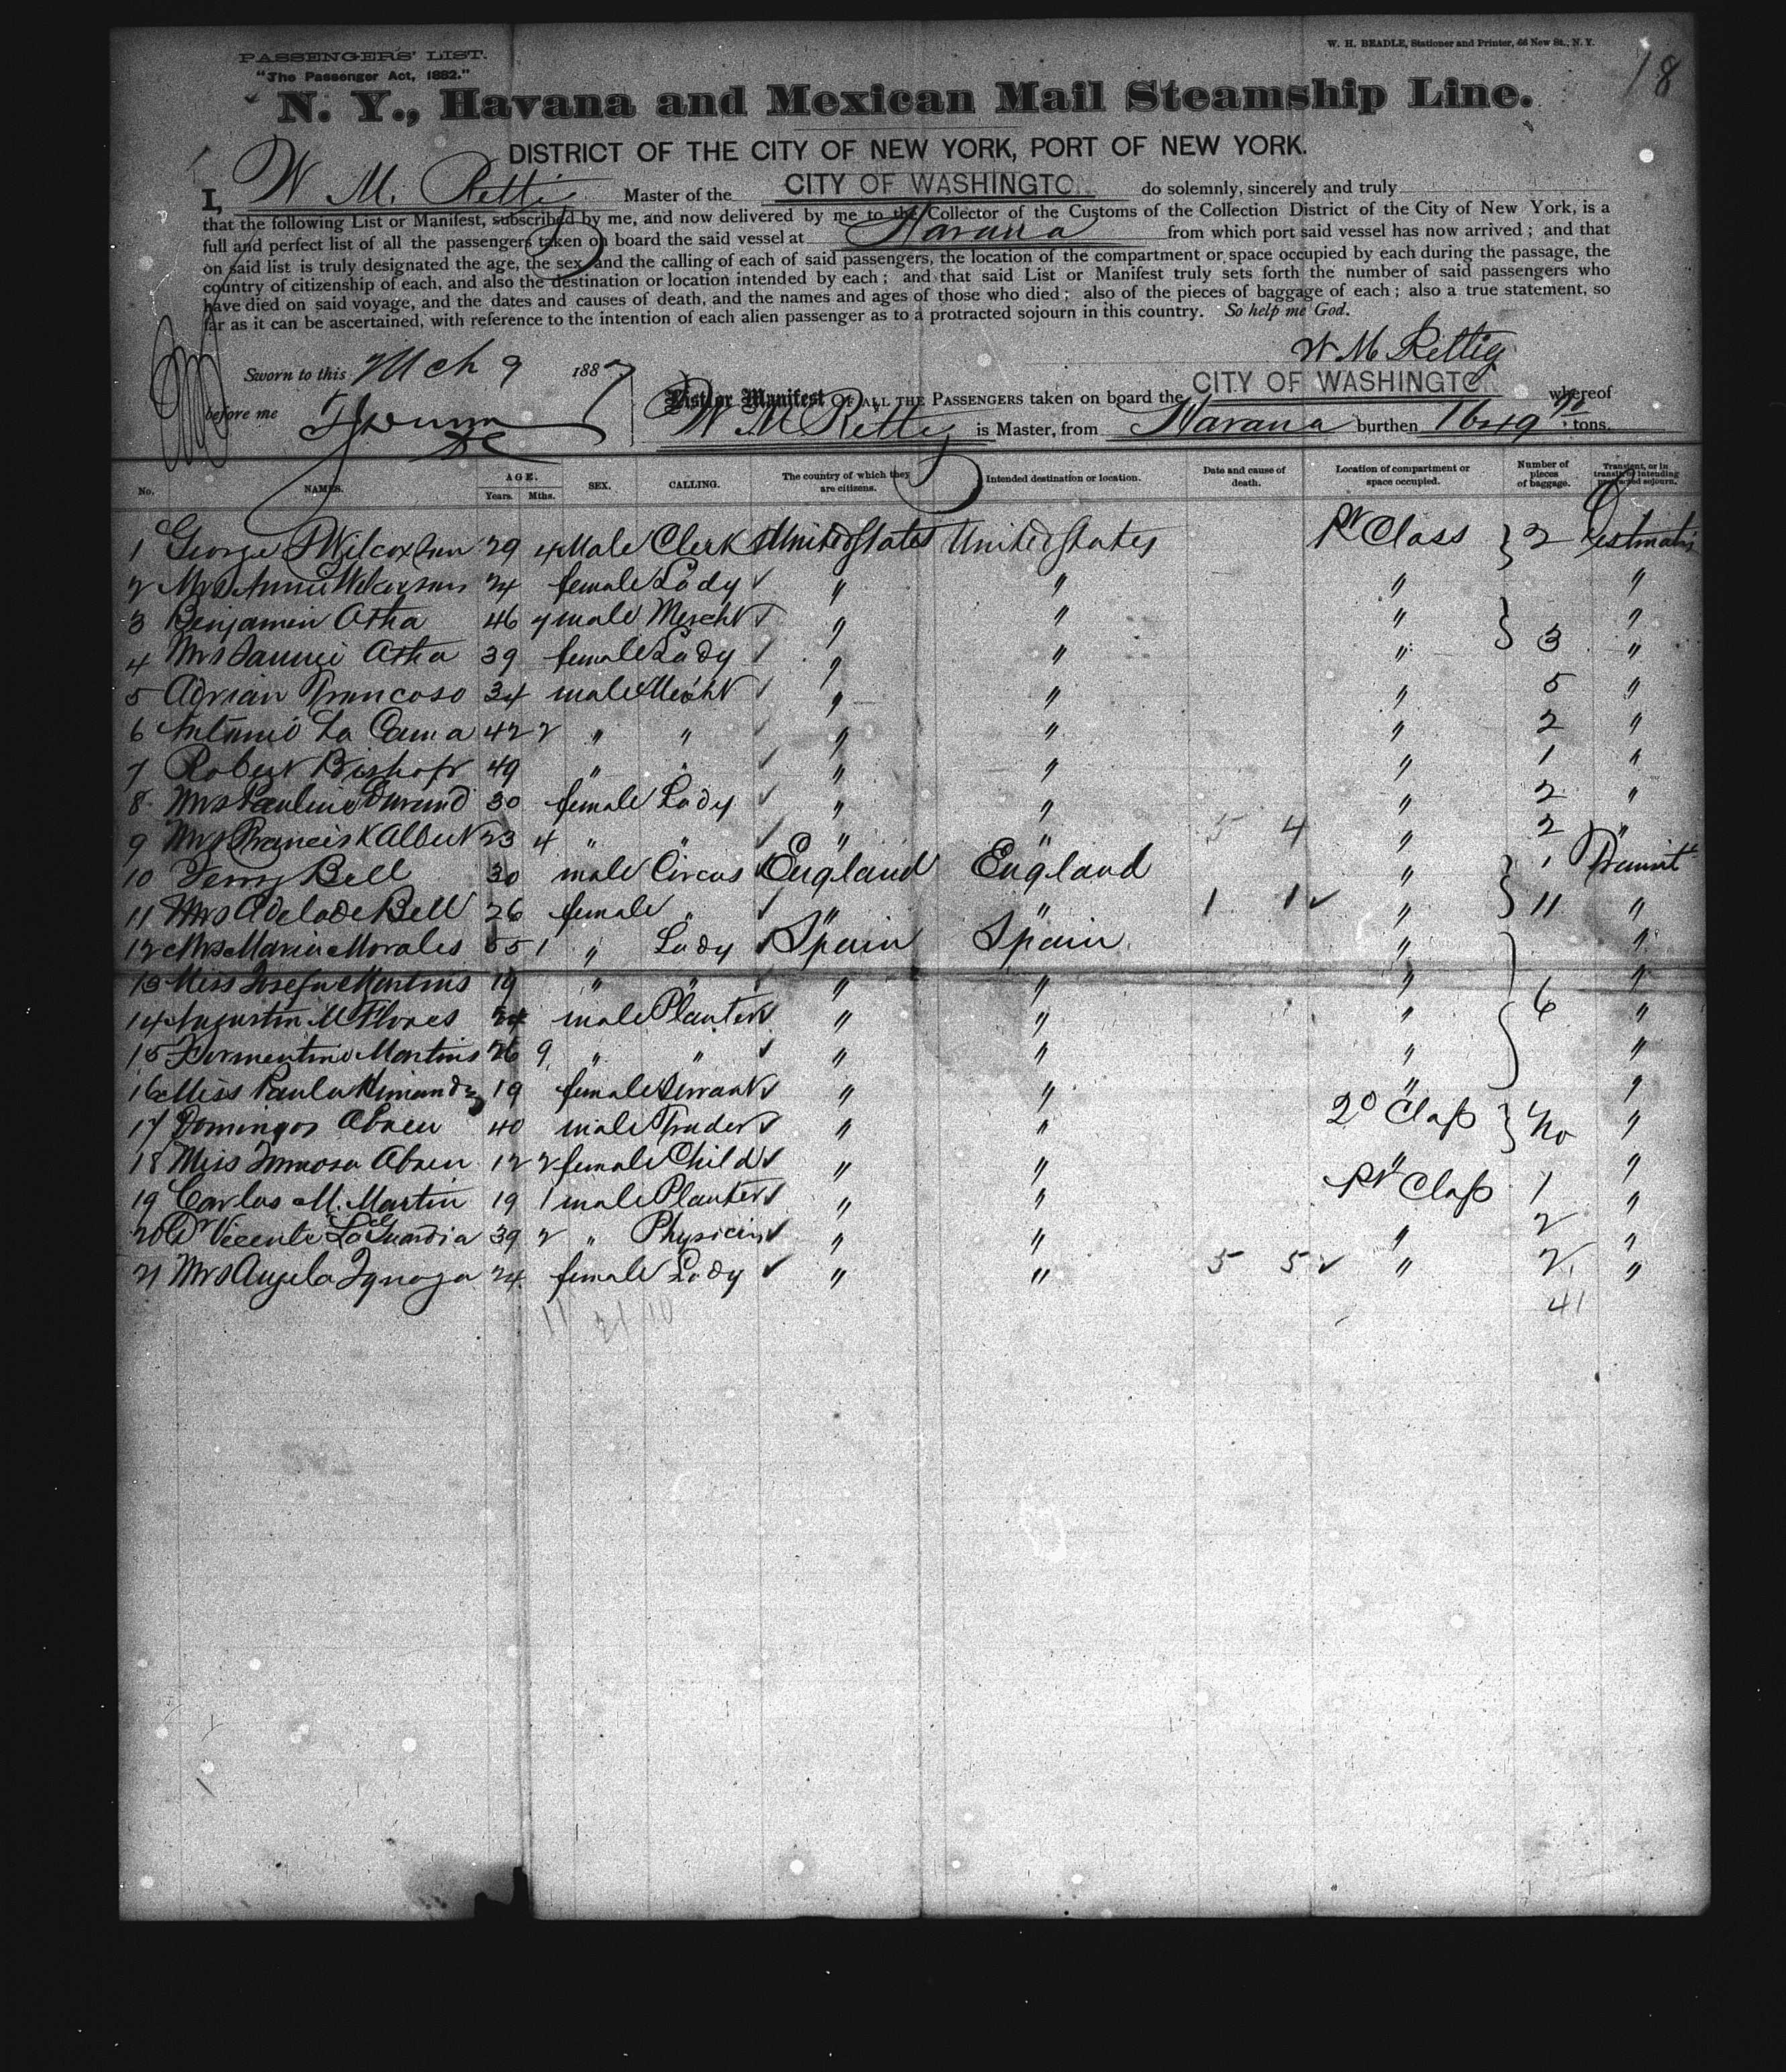 PASSENGERS' LIST.
W. H. BEADLE, Stationer and Printer, 66 New St., N. Y.
18
"The Passenger Act, 1882."
N. Y., Havana and Mexican Mail Steamship Line.
DISTRICT OF THE CITY OF NEW YORK, PORT OF NEW YORK.
I, W. M. Rettig Master of the CITY OF WASHINGTON do solemnly, sincerely and truly
that the following List or Manifest, subscribed by me, and now delivered by me to the Collector of the Customs of the Collection District of the City of New York, is a
full and perfect list of all the passengers taken on board the said vessel at Havana from which port said vessel has now arrived; and that
on said list is truly designated the age, the sex and the calling of each of said passengers, the location of the compartment or space occupied by each during the passage, the
country of citizenship of each, and also the destination or location intended by each; and that said List or Manifest truly sets forth the number of said passengers who
have died on said voyage, and the dates and causes of death, and the names and ages of those who died; also of the pieces of baggage of each; also a true statement, so
far as it can be ascertained, with reference to the intention of each alien passenger as to a protracted sojourn in this country. So help me God.
W M Rettig
Sworn to this Mch 9 1887
before me
List or Manifest OF ALL THE PASSENGERS taken on board the CITY OF WASHINGTON whereof
W M Rettig is Master, from Havana burthen 1649 tons.
No. NAMES. AGE. Years. Mths. SEX. CALLING. The country of which they are citizens. Intended destination or location. Date and cause of death. Location of compartment or space occupied. Number of pieces of baggage. Transient, or in transit, or intending protracted sojourn.
1 George Wilcoxson 29 4 Male Clerk United States United States Class 2
2 Mrs Annie Wilcoxson 24 female Lady " " " "
3 Benjamin Atha 46 7 male Mercht " " " "
4 Mrs Fannie Atha 39 female Lady " " " 3 "
5 Adrian Troncoso 34 male Mercht " " " 5 "
6 Antonio La Cama 42 2 " " " " " 2 "
7 Robert Bishop 49 " " " " " 1 "
8 Mrs Pauline Durand 30 female Lady " " " 2 "
9 Mrs Francis K Albert 23 4 " " " " 5 4 " 2 "
10 Bell 30 male Circus England England " 1 Transit
11 Mrs Adelade Bell 26 female " " " 1 1 " 11 "
12 Mrs Maria Morales 55 1 " Lady Spain Spain " "
13 Miss Josefa Martins 19 " " " " " "
14 Augustin M Flores male Planter " " " 6 "
15 Martins 26 9 " " " " " "
16 Miss Paula 19 female Servant " " " "
17 Domingos Abreu 40 male Trader " " 2d Class "
18 Miss Abreu 12 2 female Child " " " "
19 Carlos M. Martin 19 1 male Planter " " Class 1 "
20 Dr Vicente La Guardia 39 2 " Physician " " " 2 "
21 Mrs Angela 24 female Lady " " 5 5 " 2 "
41